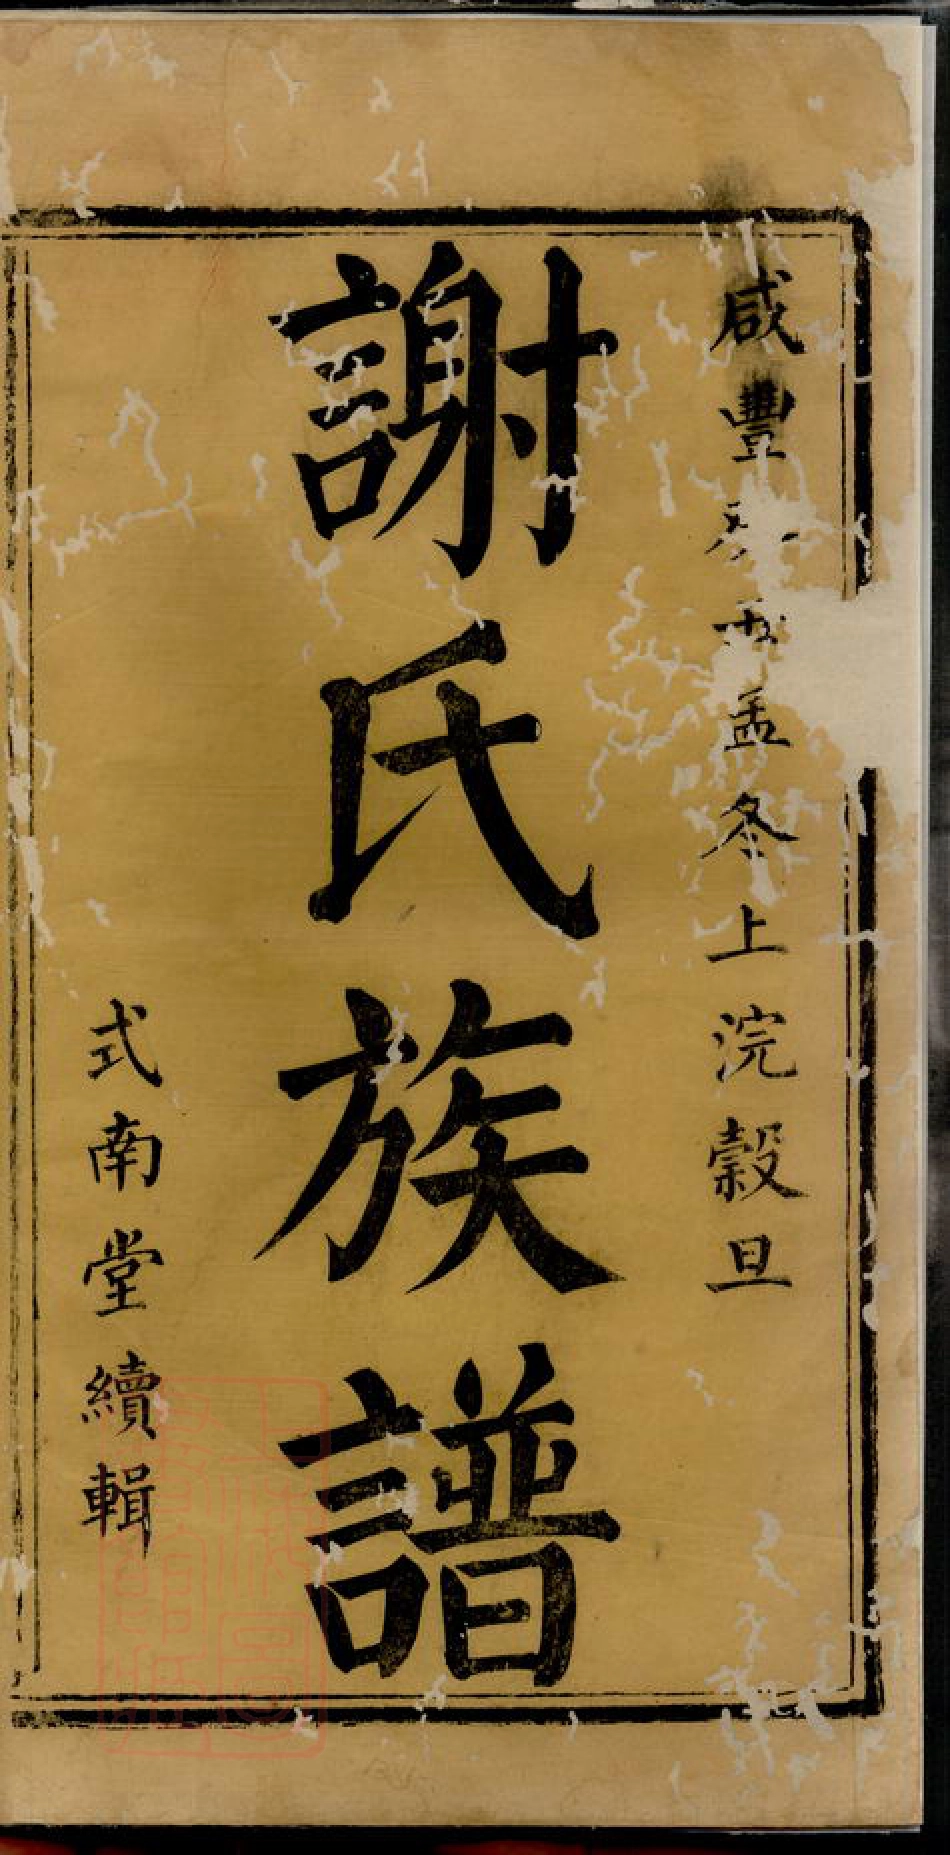 咸豐癸丑孟冬上浣穀旦
謝氏族譜
式南堂續輯